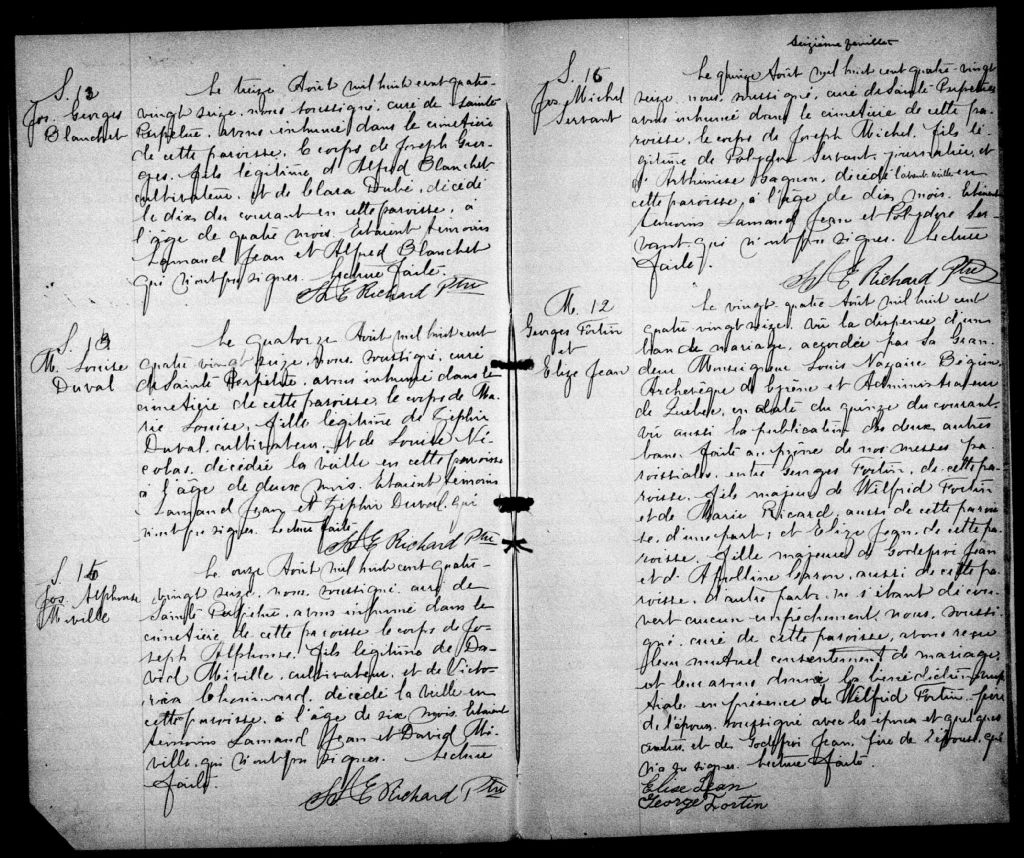 S. 13
Jos. Georges
Blanchet
Le treize Août mil huit cent quatre-
vingt seize, nous soussigné, curé de Sainte
Perpétue, avons inhumé dans le cimetière
de cette paroisse, le corps de Joseph Geor-
ges, fils légitime d'Alfred Blanchet
cultivateur, et de Clara Dubé, décédé
le dix du courant en cette paroisse, à
l'âge de quatre mois. Etaient témoins
Lamand Jean et Alfred Blanchet
qui n'ont pu signer. Lecture faite.
E Richard Ptre
S.
M. Louise
Duval
Le quatorze Août mil huit cent
quatre vingt seize, nous, soussigné, curé
de Sainte Perpétue, avons inhumé dans le
cimetière de cette paroisse, le corps de Ma-
rie Louise, fille légitime de Ziphir
Duval, cultivateur, et de Louise Ni-
colas, décédée la veille en cette paroisse
à l'âge de deux mois. Etaient témoins
Lamand Jean et Ziphir Duval, qui
n'ont pu signer. Lecture faite.
E Richard Ptre
S.
Jos. Alphonse
Miville
Le onze Août mil huit cent quatre-
vingt seize, nous, soussigné, curé de
Sainte Perpétue, avons inhumé dans le
cimetière de cette paroisse le corps de Jo-
seph Alphonse, fils légitime de Da-
vid Miville, cultivateur, et de Victo-
ria Chouinard, décédé la veille en
cette paroisse, à l'âge de six mois. Etaient
témoins Lamand Jean et David Mi-
ville, qui n'ont pu signer. Lecture
faite.
E Richard Ptre
Seizième feuillet
S. 16
Jos. Michel
Servant
Le quinze Août mil huit cent quatre-vingt
seize, nous, soussigné, curé de Sainte Perpétue
avons inhumé dans le cimetière de cette pa-
roisse, le corps de Joseph Michel, fils lé-
gitime de Polydore Servant, journalier, et
d'Arthémise Gagnon, décédé l'avant veille en
cette paroisse, à l'âge de dix mois. Etaient
témoins Lamand Jean et Polydore Ser-
vant, qui n'ont pu signer. Lecture
faite.
E Richard Ptre
M. 12
Georges Fortin
et
Elize Jean
Le vingt quatre Août mil huit cent
quatre vingt seize, vû la dispense d'un
ban de mariage, accordée par Sa Gran-
deur Monseigneur Louis Nazaire Bégin
Archevêque de Cyrène et Administrateur
de Québec, en date du quinze du courant
vû aussi la publication des deux autres
bans, faite au prône de nos messes pa-
roissiales, entre Georges Fortin, de cette pa-
roisse, fils majeur de Wilfrid Fortin
et de Marie Ricard, aussi de cette parois-
se, d'une part; et Elize Jean, de cette pa-
roisse, fille majeure de Godefroi Jean
et d'Apolline Caron, aussi de cette pa-
roisse, d'autre part; ne s'étant décou-
vert aucun empêchement, nous, soussi-
gné, curé de cette paroisse, avons reçu
leur mutuel consentement de mariage
et leur avons donné la bénédiction nup-
tiale en présence de Wilfrid Fortin, père
de l'époux, soussigné avec les époux et quelques
et de Godefroi Jean, père de l'épouse, qui
n'a su signer. Lecture faite.
Elise Jean
George Fortin